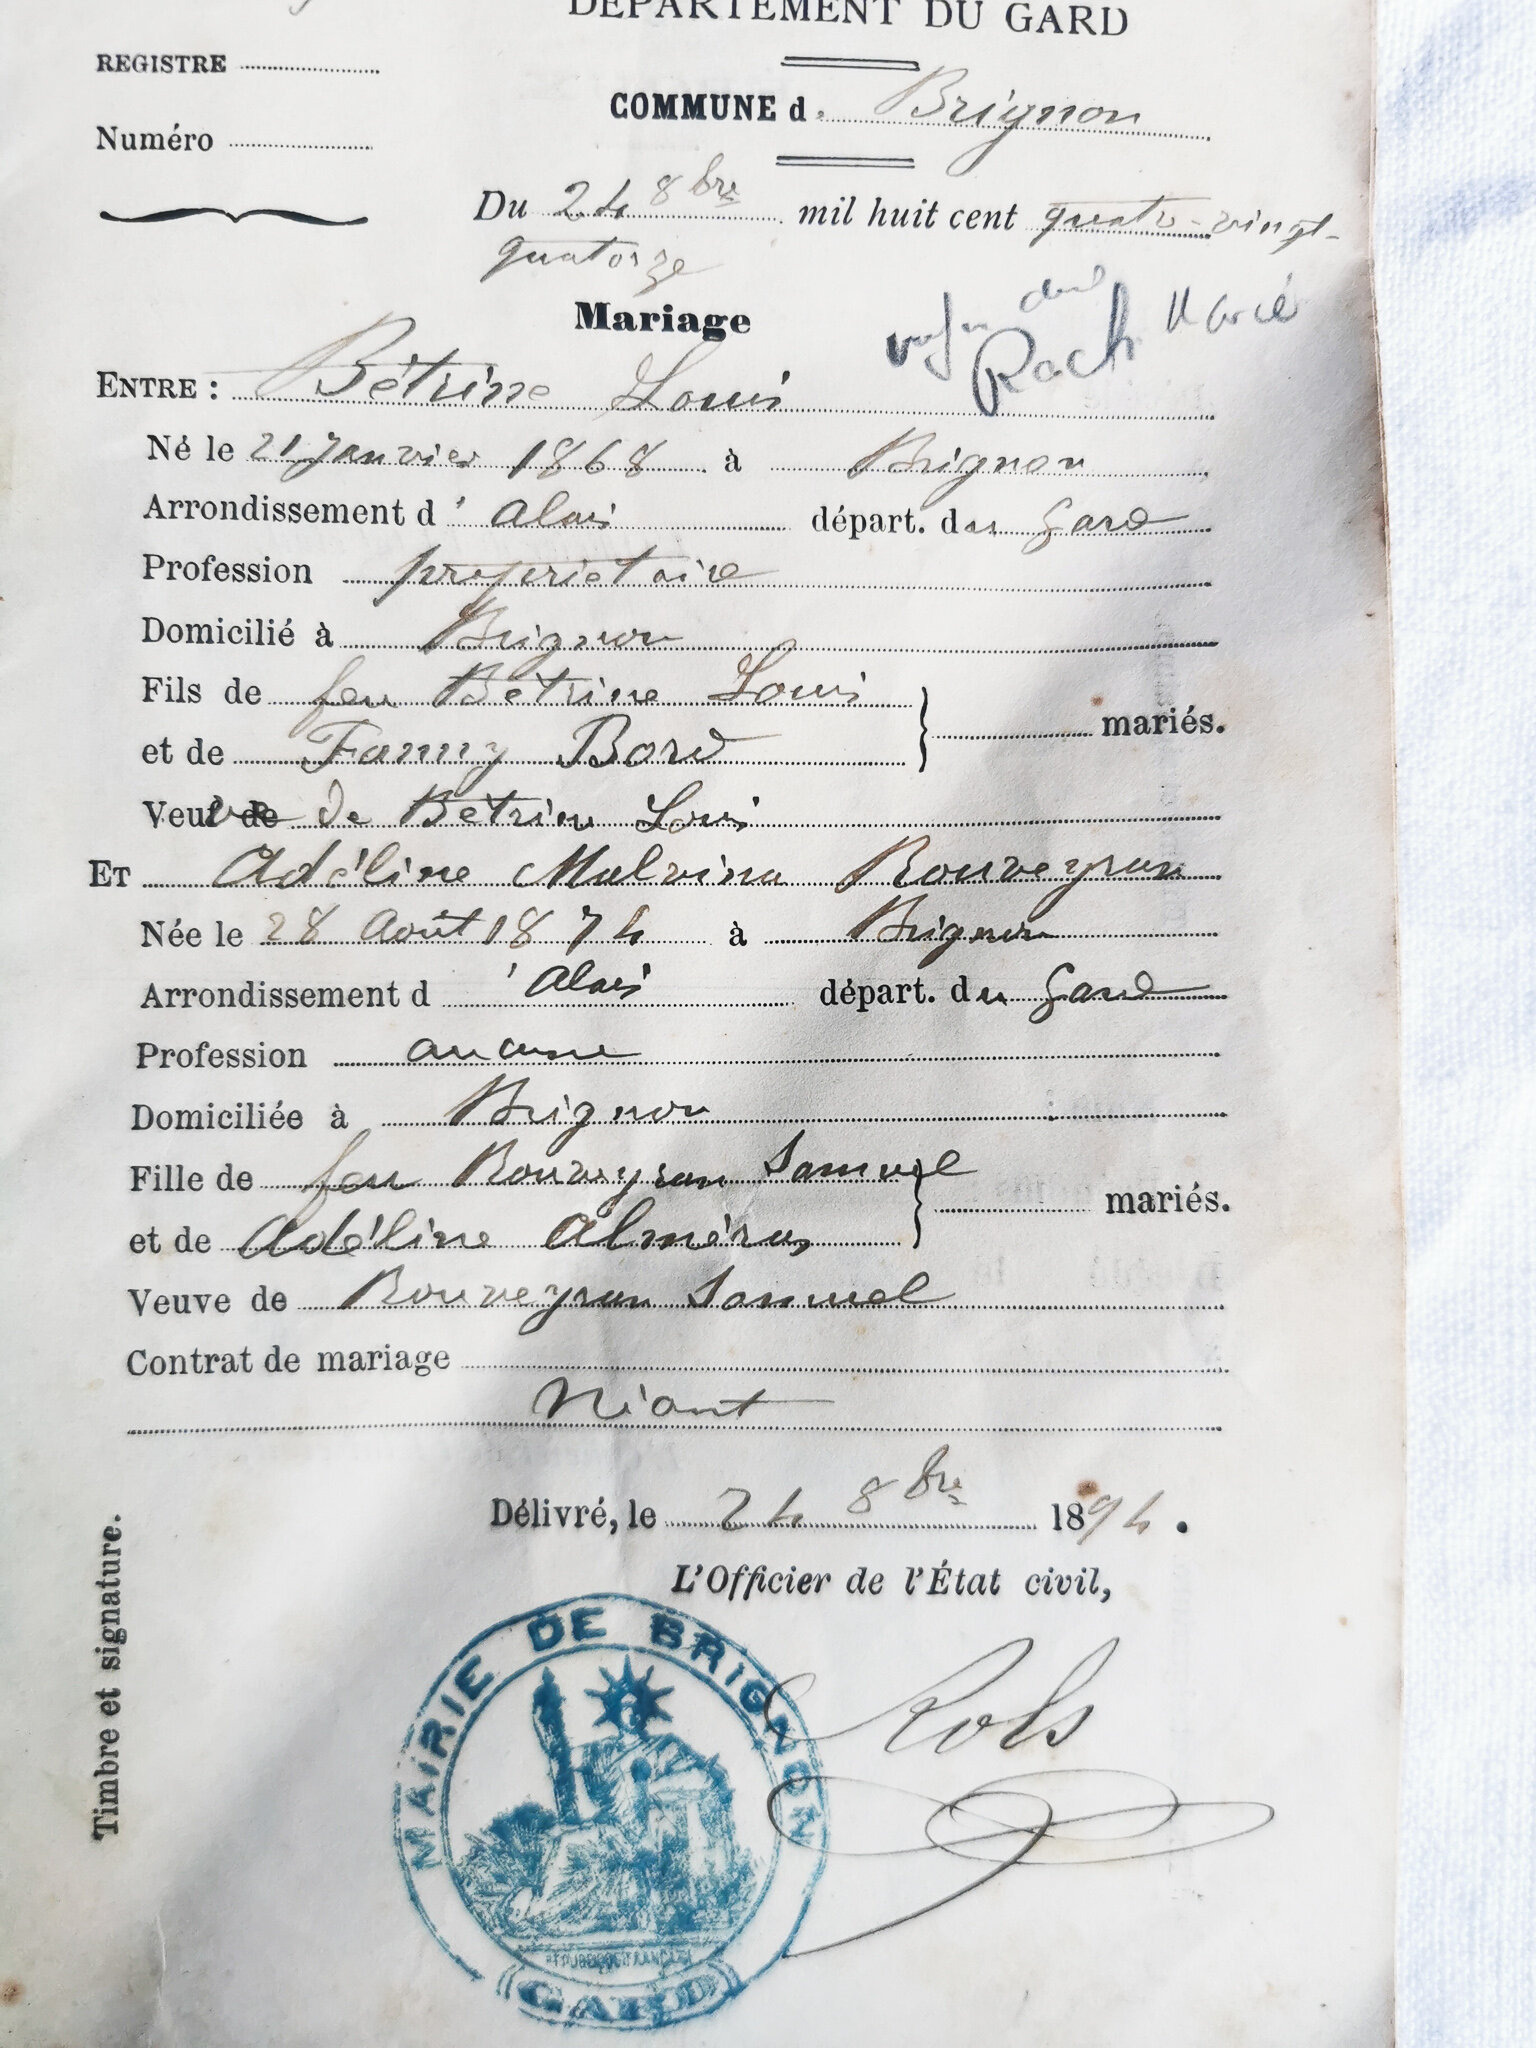 DÉPARTEMENT DU GARD
REGISTRE
COMMUNE d. Brignon
Numéro
Du 24 8bre mil huit cent quatre-vingt-
quatorze
Mariage
Roch
ENTRE : Bétrine Louis
Né le 21 Janvier 1868 à Brignon
Arrondissement d' Alais départ. du Gard
Profession propriétaire
Domicilié à Brignon
Fils de feu Bétrine Louis
et de Fanny Bord mariés.
Veuve de Bétrine Louis
ET Adéline Malvina Rouveyran
Née le 28 Août 1874 à Brignon
Arrondissement d' Alais départ. du Gard
Profession aucune
Domiciliée à Brignon
Fille de feu Rouveyran Samuel
et de Adéline Alméras mariés.
Veuve de Rouveyran Samuel
Contrat de mariage
Néant
Délivré, le 24 8bre 1894.
L'Officier de l'État civil,
Timbre et signature.
Rols
MAIRIE DE BRIGNON
RÉPUBLIQUE FRANÇAISE
(GARD)